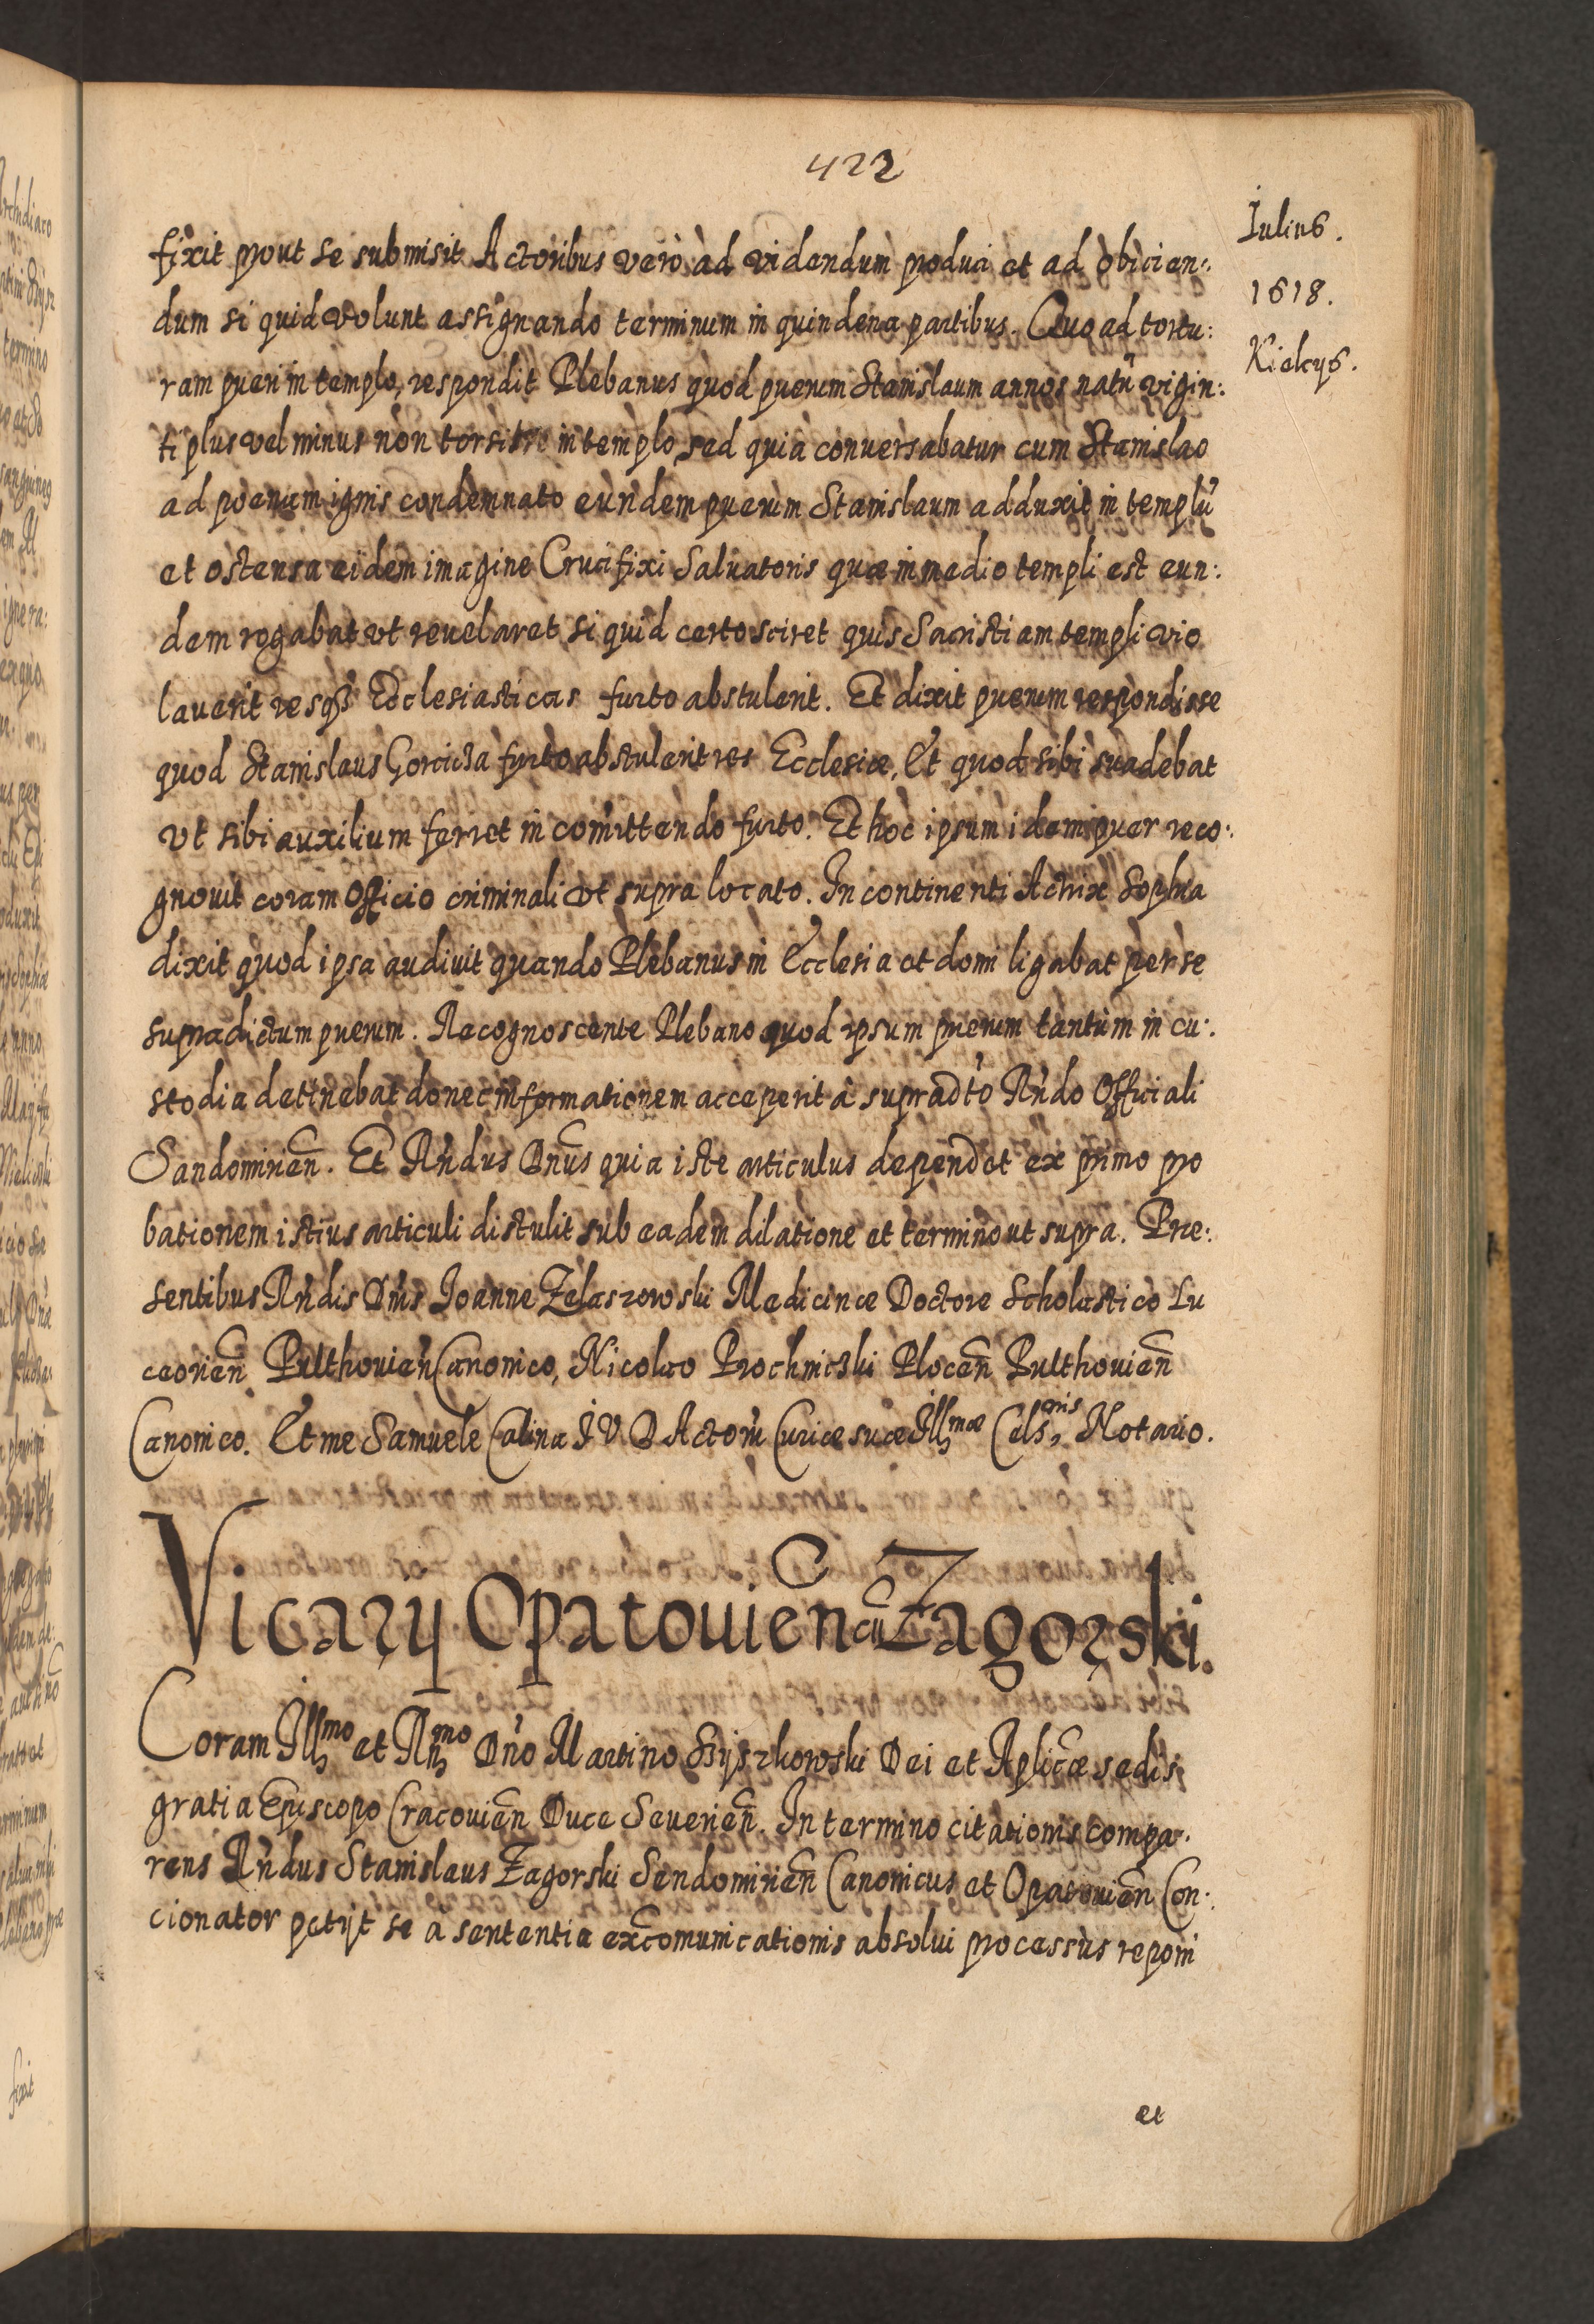 422
Iulius.
1618.
Kielcys.
fixit prout se submisit Actoribus vero ad videndum produci et ad obicien:
dum si quid volunt assignando terminum in quindena partibus. Quo ad tortu:
ram pueri in templo, respondit Plebanus quod puerum Stanislaum annos natū vigin:
ti plus vel minus non torsit in templo, sed quia conuersabatur cum Stanislao
ad poenam ignis condemnato eundem puerum Stanislaum adduxit in templū
et ostensa eidem imagine Crucifixi Saluatoris quæ in medio templi est eun:
dem rogabat vt reuelaret si quid certo sciret quis Sacristiam templi vio
lauerit resq3 Ecclesiasticas furto abstulerit. Et dixit puerum respondisse
quod Stanislaus Gorcicza furto abstulerit res Ecclesiæ, Et quod sibi suadebat
vt sibi auxilium ferret in comittendo furto. Et hoc ipsum idem puer reco:
gnouit coram Officio criminali vt supra locato. In continenti Actrix Sophia
dixit quod ipsa audiuit quando Plebanus in Ecclesia et domi ligabat per se
supradictum puerum. Recognoscente Plebano quod ipsum puerum tantum in cu:
stodia detinebat donec informationem acceperit à supradto Rndo Officiali
Sandomirien̄. Et Rndus Dnus quia iste articulus dependet ex primo pro
bationem istius articuli distulit sub eadem dilatione et termino ut supra. Præ:
sentibus Rndis Dnis Ioanne Zelaszowski Medicinæ Doctore Scholastico Lu
ceorien̄ Pulthouien̄ Canonico, Nicolao Prochniczki Plocen̄ Pulthouien̄
Canonico. Et me Samuele Calina I V D Actorū Curiæ suæ Illmæ Cels,nis Notario.
Vicarij Opatouien̄ cū Zagorski.
Coram Illmo et Rmo Dno Martino Szyszkowski Dei et Aplicæ sedis
gratia Episcopo Cracouien̄ Duce Seuerien̄. In termino citationis compa:
rens Rndus Stanislaus Zagorski Sendomirien̄ Canonicus et Opatouien̄ Con:
cionator petijt se à sententia excomunicationis absolui processus reponi
et